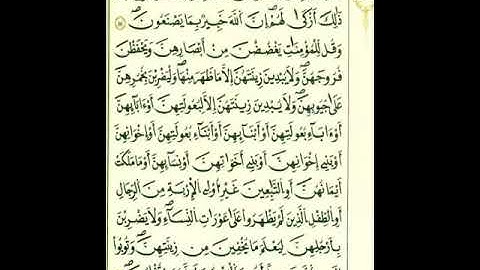 ذَٰلِكَ أَزْكَىٰ لَهُمْ إِنَّ اللَّهَ خَبِيرٌ بِمَا يَصْنَعُونَ
وَقُل لِّلْمُؤْمِنَاتِ يَغْضُضْنَ مِنْ أَبْصَارِهِنَّ وَيَحْفَظْنَ
فُرُوجَهُنَّ وَلَا يُبْدِينَ زِينَتَهُنَّ إِلَّا مَا ظَهَرَ مِنْهَا وَلْيَضْرِبْنَ بِخُمُرِهِنَّ
عَلَىٰ جُيُوبِهِنَّ وَلَا يُبْدِينَ زِينَتَهُنَّ إِلَّا لِبُعُولَتِهِنَّ أَوْ ءَابَآئِهِنَّ
أَوْ ءَابَآءِ بُعُولَتِهِنَّ أَوْ أَبْنَآئِهِنَّ أَوْ أَبْنَآءِ بُعُولَتِهِنَّ أَوْ إِخْوَانِهِنَّ
أَوْ بَنِي إِخْوَانِهِنَّ أَوْ بَنِي أَخَوَاتِهِنَّ أَوْ نِسَآئِهِنَّ أَوْ مَا مَلَكَتْ
أَيْمَانُهُنَّ أَوِ التَّابِعِينَ غَيْرِ أُولِي الْإِرْبَةِ مِنَ الرِّجَالِ
أَوِ الطِّفْلِ الَّذِينَ لَمْ يَظْهَرُوا عَلَىٰ عَوْرَاتِ النِّسَآءِ وَلَا يَضْرِبْنَ
بِأَرْجُلِهِنَّ لِيُعْلَمَ مَا يُخْفِينَ مِن زِينَتِهِنَّ وَتُوبُوا